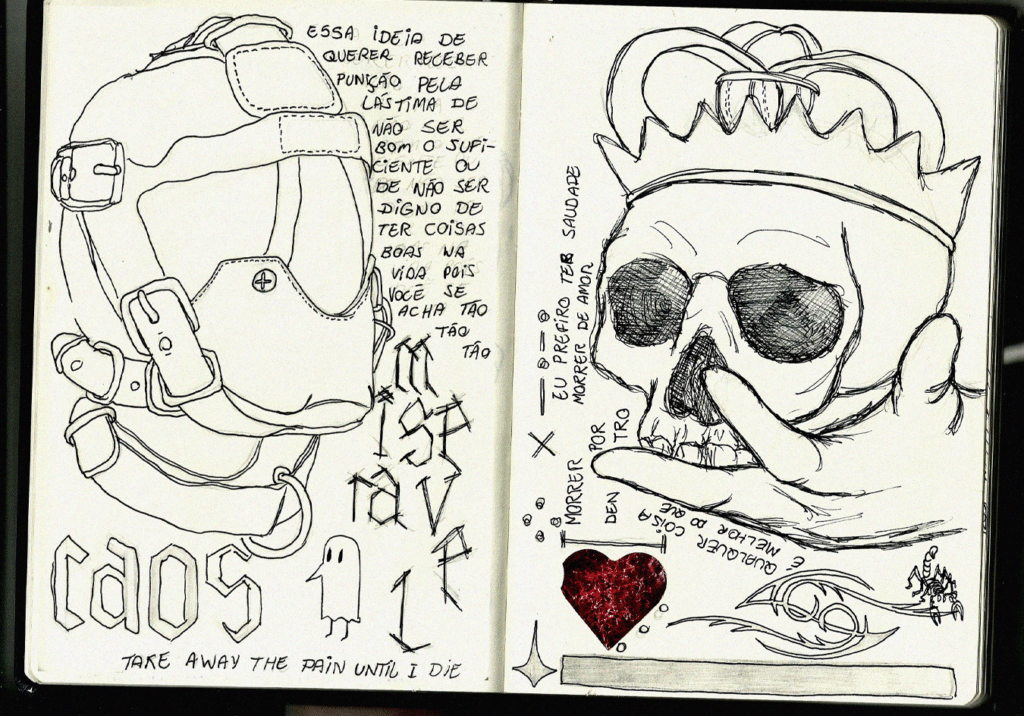 ESSA IDEIA DE
QUERER RECEBER
PUNIÇÃO PELA
LÁSTIMA DE
NÃO SER
BOM O SUFI-
CIENTE OU
DE NÃO SER
DIGNO DE
TER COISAS
BOAS NA
VIDA POIS
VOCÊ SE
ACHA TÃO
TÃO
TÃO
m
iSE
RÁV
E
L
caos
TAKE AWAY THE PAIN UNTIL I DIE
EU PREFIRO TER SAUDADE
MORRER DE AMOR
QUALQUER COISA
É MELHOR DO QUE
MORRER POR
DEN TRO